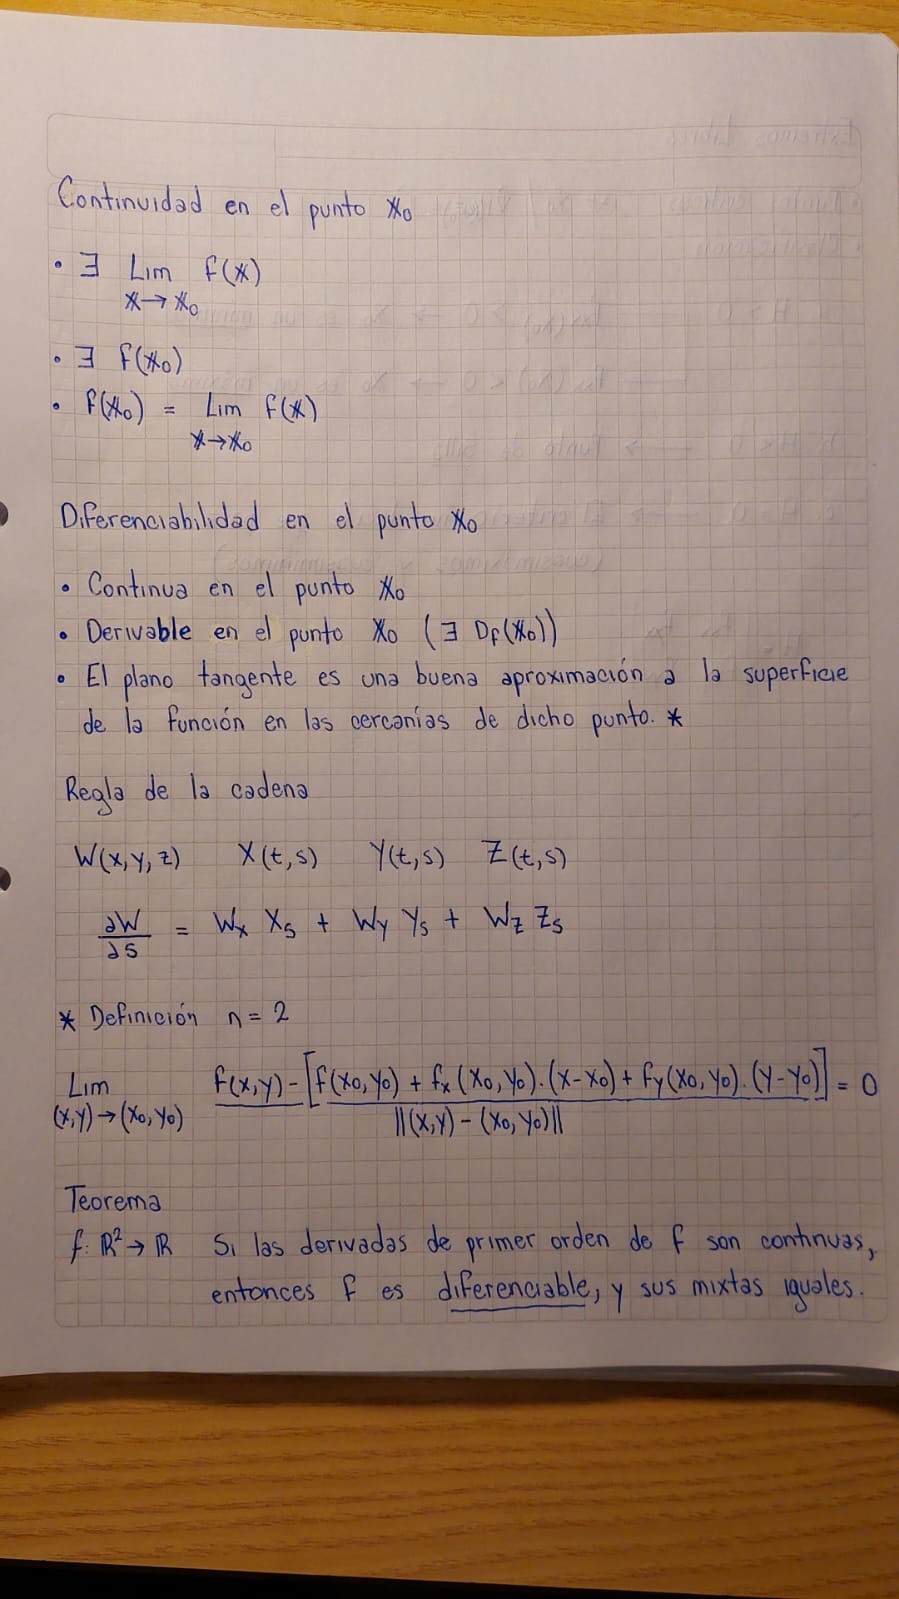 Continuidad en el punto x₀
• ∃ Lim f(x)
x→x₀
• ∃ f(x₀)
• f(x₀) = Lim f(x)
x→x₀
Diferenciabilidad en el punto x₀
• Continua en el punto x₀
• Derivable en el punto x₀ (∃ Df(x₀))
• El plano tangente es una buena aproximación a la superficie
de la función en las cercanías de dicho punto. *
Regla de la cadena
W(x,y,z) X(t,s) Y(t,s) Z(t,s)
∂W/∂s = Wx Xs + Wy Ys + Wz Zs
* Definición n = 2
Lim f(x,y) - [f(x₀,y₀) + fx(x₀,y₀).(x-x₀) + fy(x₀,y₀).(y-y₀)] = 0
(x,y)→(x₀,y₀) ||(x,y) - (x₀,y₀)||
Teorema
f: ℝ² → ℝ Si las derivadas de primer orden de f son continuas,
entonces f es diferenciable, y sus mixtas iguales.